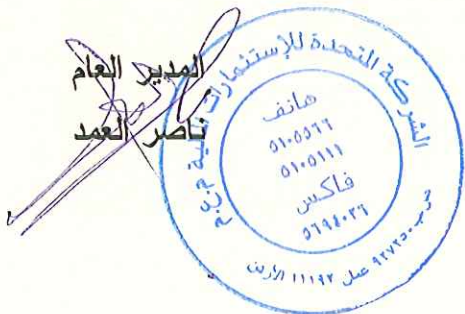 المدير العام
ناصر العمد
الشركة المتحدة للإستثمارات المالية م.ع.م
هاتف
٥١٠٥٥٦٦
٥١٠٥١١١
فاكس
٥٦٩٤٠٣٦
ص.ب ٩٢٧٢٥٠ عمان ١١١٩٢ الأردن